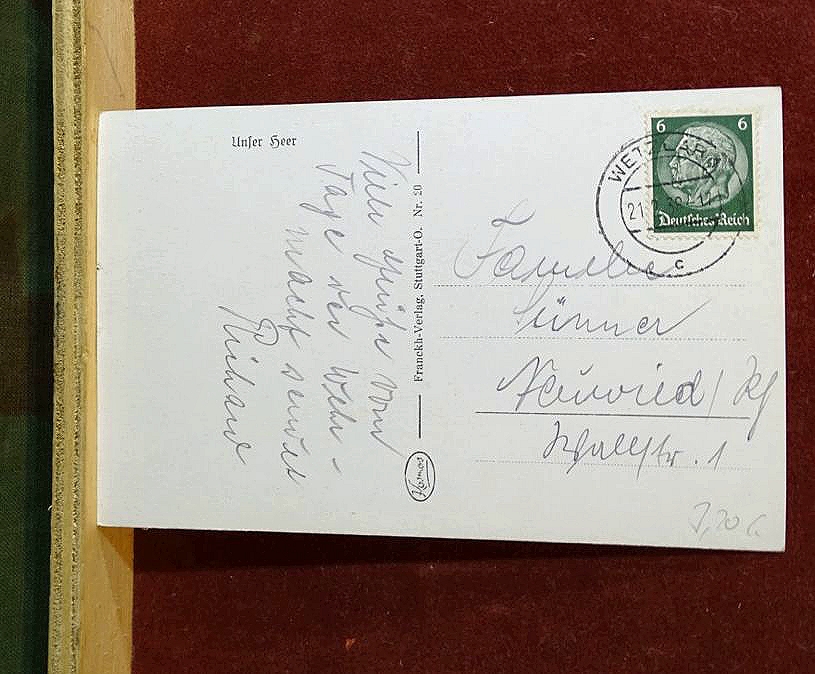 Unser Heer
Viele Grüße vom
Tage der Wehr-
macht sendet
Richard
Franckh-Verlag, Stuttgart-O. Nr. 20
Kosmos
6 6
Deutsches Reich
WETZLAR
21.
c
Familie
Sünner
Neuwied / Rh
str. 1